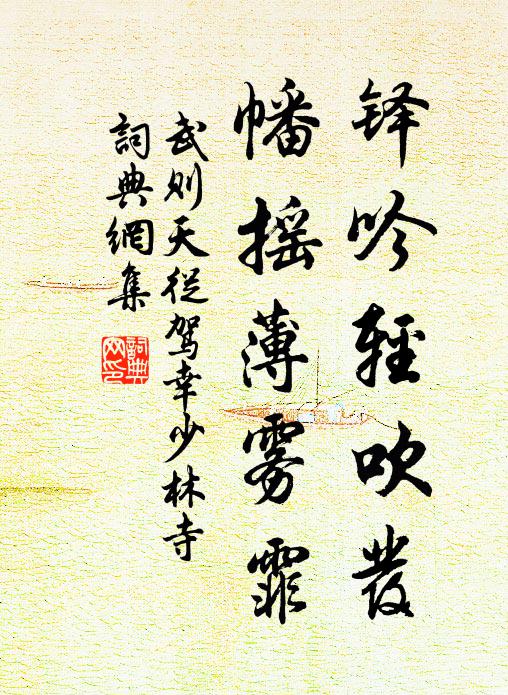 铎吟輕吹發
幡摇薄雾霏
武则天從駕幸少林寺
詞典網集
詞典网印